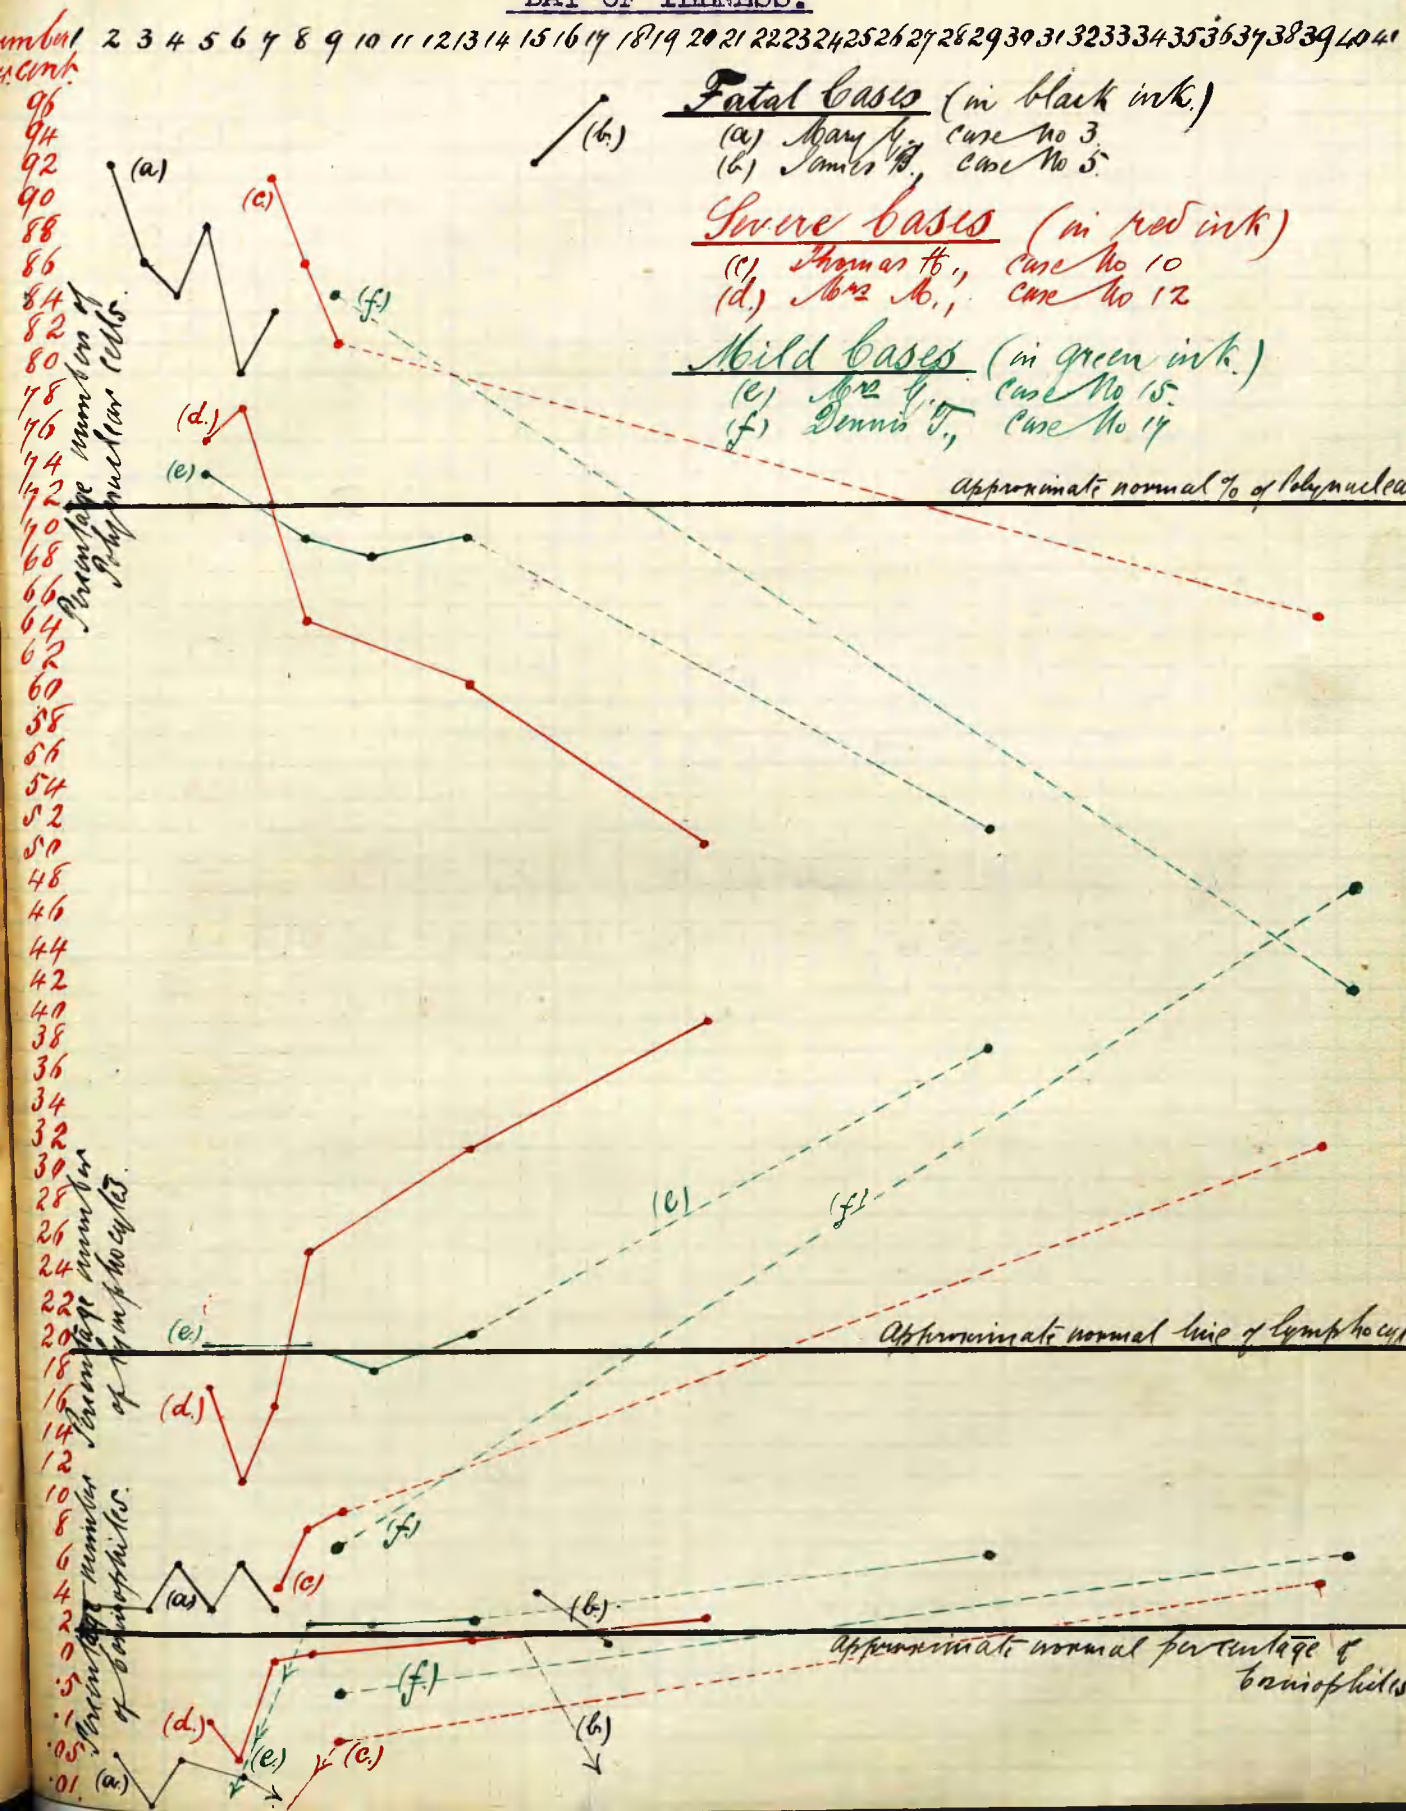 DAY OF ILLNESS.
1 2 3 4 5 6 7 8 9 10 11 12 13 14 15 16 17 18 19 20 21 22 23 24 25 26 27 28 29 30 31 32 33 34 35 36 37 38 39 40 41
96
94
92
90
88
86
84
82
80
78
76
74
72
70
68
66
64
62
60
58
56
54
52
50
48
46
44
42
40
38
36
34
32
30
28
26
24
22
20
18
16
14
12
10
8
6
4
2
0
.5
.1
.05
.01
Percentage numbers of
Polynuclear cells.
Percentage number
of lymphocytes.
Percentage number
of eosinophiles.
Fatal Cases (in black ink.)
(a) Mary G., Case No 3.
(b) James B., Case No 5.
Severe Cases (in red ink)
(c) Thomas H., Case No 10
(d.) Mrs M., Case No 12
Mild Cases (in green ink.)
(e) Mrs G., Case No 15.
(f) Dennis T., Case No 17
(a)
(b.)
(c.)
(f.)
(d.)
(e)
Approximate normal % of Polynuclea
(e)
(f)
(e.)
Approximate normal line of lymphocy
(d.)
(f)
(c)
(a)
(b.)
Approximate normal percentage of
Eosinophiles
(f.)
(d.)
(e.)
(c.)
(b)
(a.)